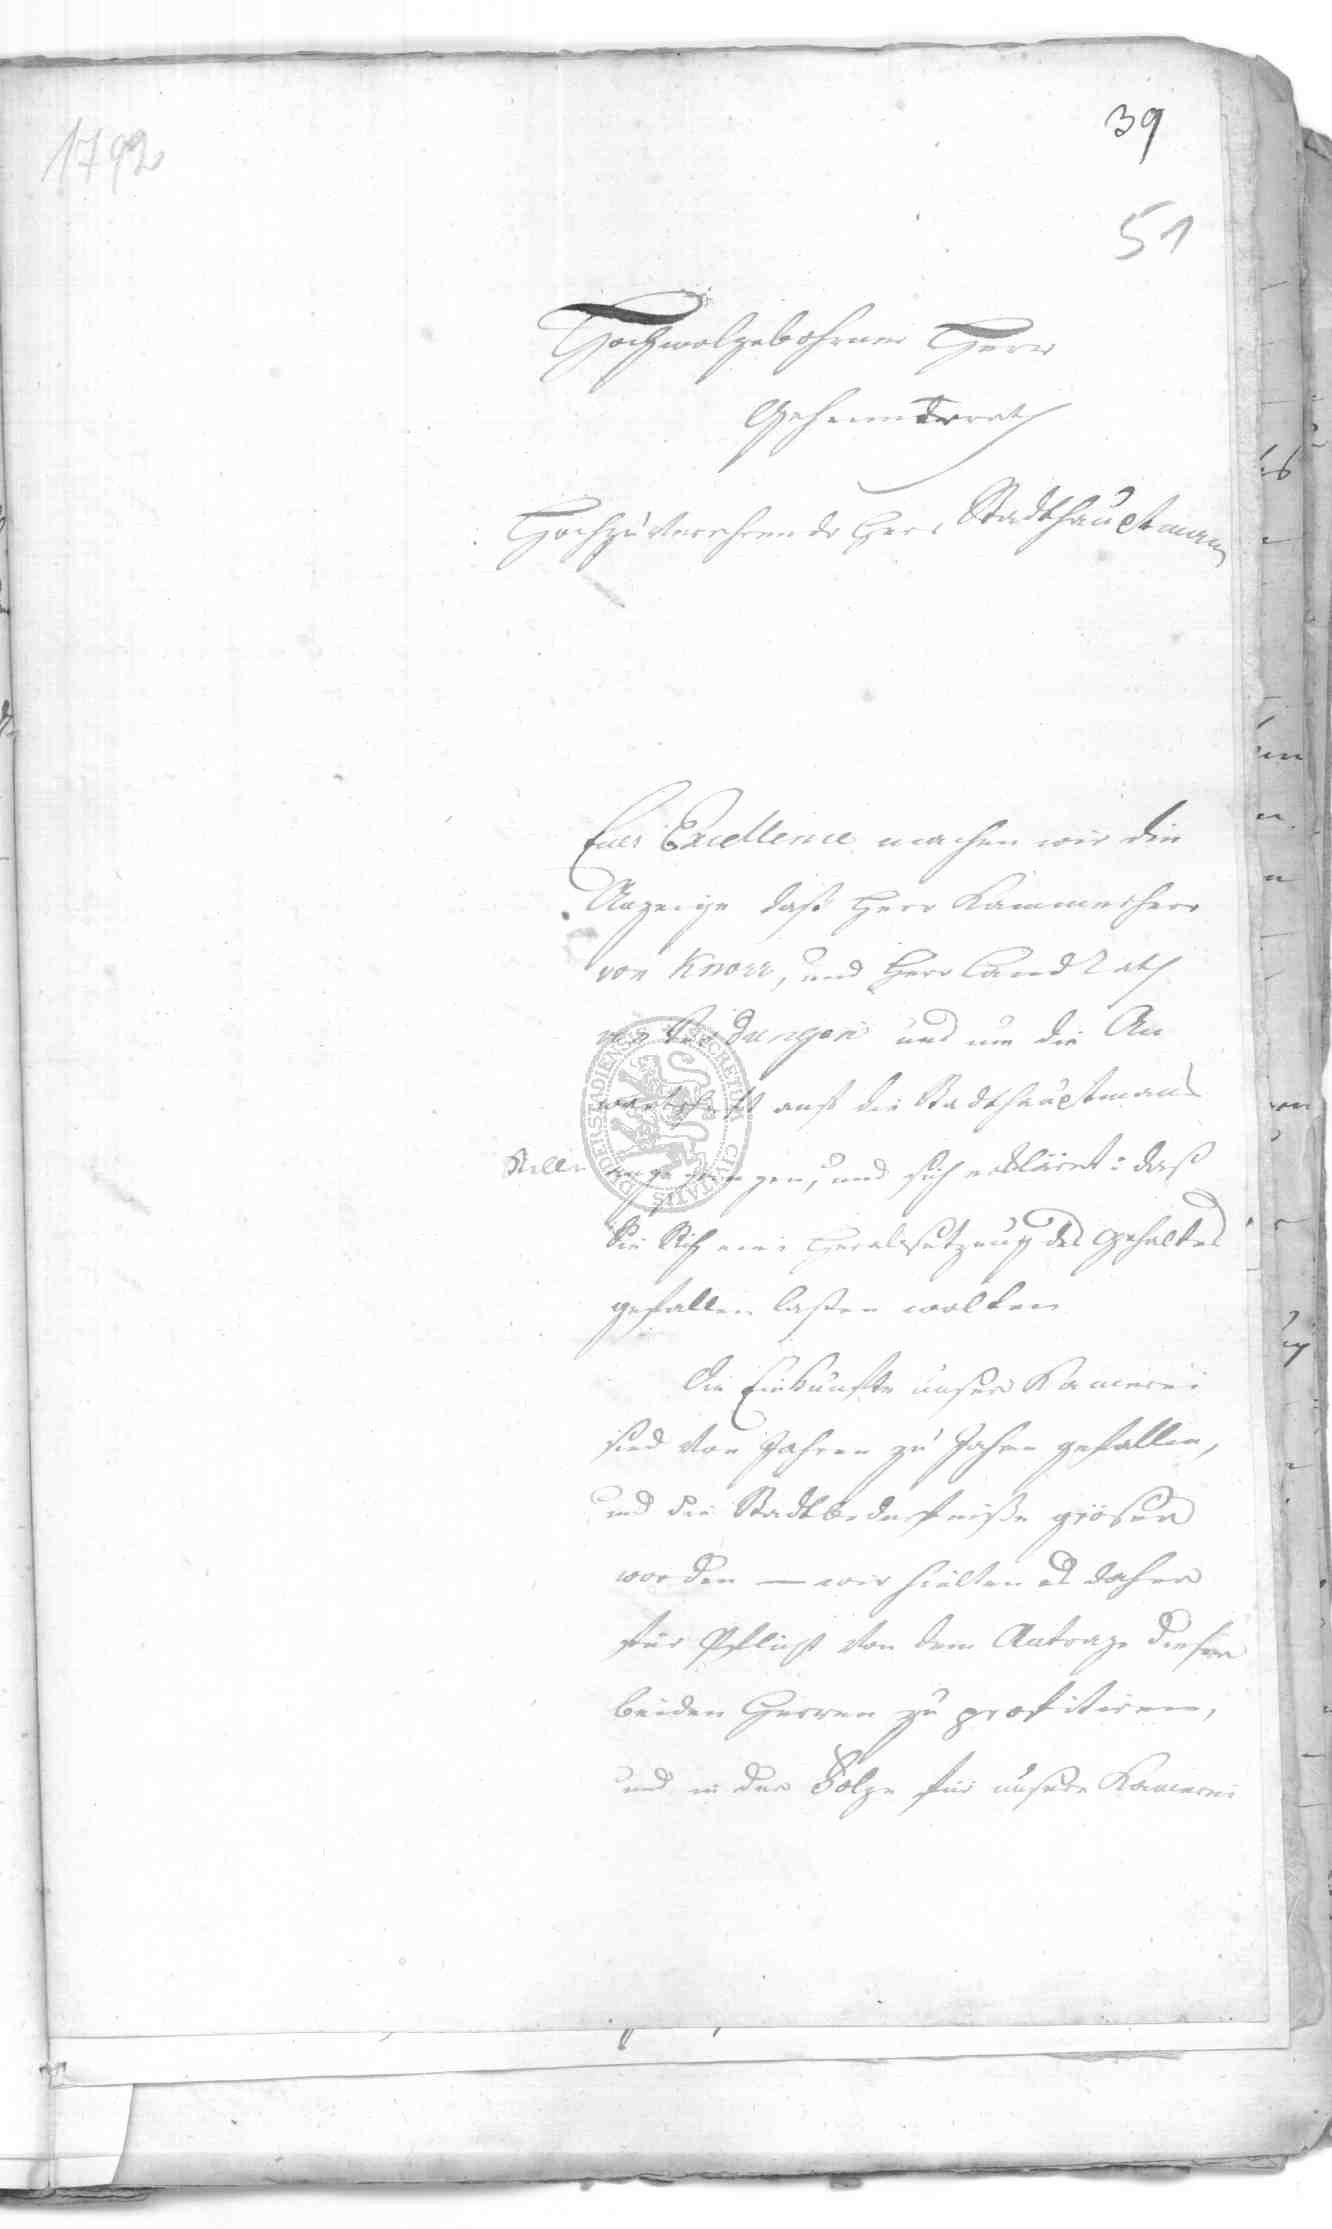 1792
39
51
Hochwolgebohrner Herr
Geheimderrath
Hochzuverehrende Herr Stadthauptmann
Euer Excellence machen wir die
Anzeige daß Herr Kammerherr
von Knorr, und Herr Landrath
von dungen uns um die An
wartschaft auf die Stadthauptmans
Stelle angegangen, und sich erkläret: daß
Sie Sich eine Herabsetzung des Gehaltes
gefallen laßen wolten
Die Einkünfte unser Kamerei
sind von Jahren zu Jahren gefallen,
und die Stadtbedürfniße gröser
worden — wir hielten es daher
für Pflicht von dem Antrage dieser
beiden Herren zu profitiren,
und in der Folge für unsere Kamerei
SECRETUM CIVITATIS DUDERSTADIENSIS